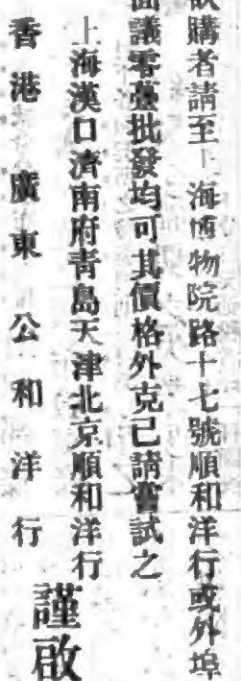 購者請至上海博物院路十七號順和洋行或外埠
面議零躉批發均可其價格外克已請嘗試之
上海漢口濟南府青島天津北京順和洋行
香港廣東公和洋行
謹啟